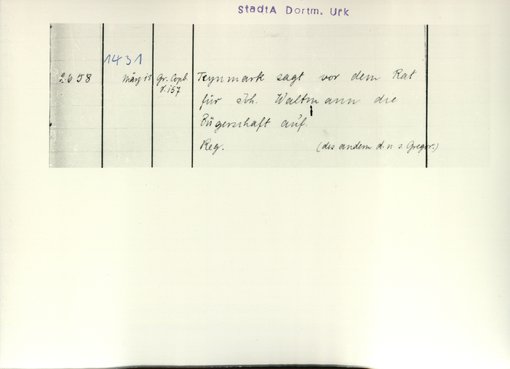 StadtA Dortm. Urk
1431
2658 März 13 Gr. Copb. Teynmark sagt vor dem Rat
f. 157
für Joh. Waltmann die
Bügerschaft auf.
Reg. (des andern d. n. s Gregor.)